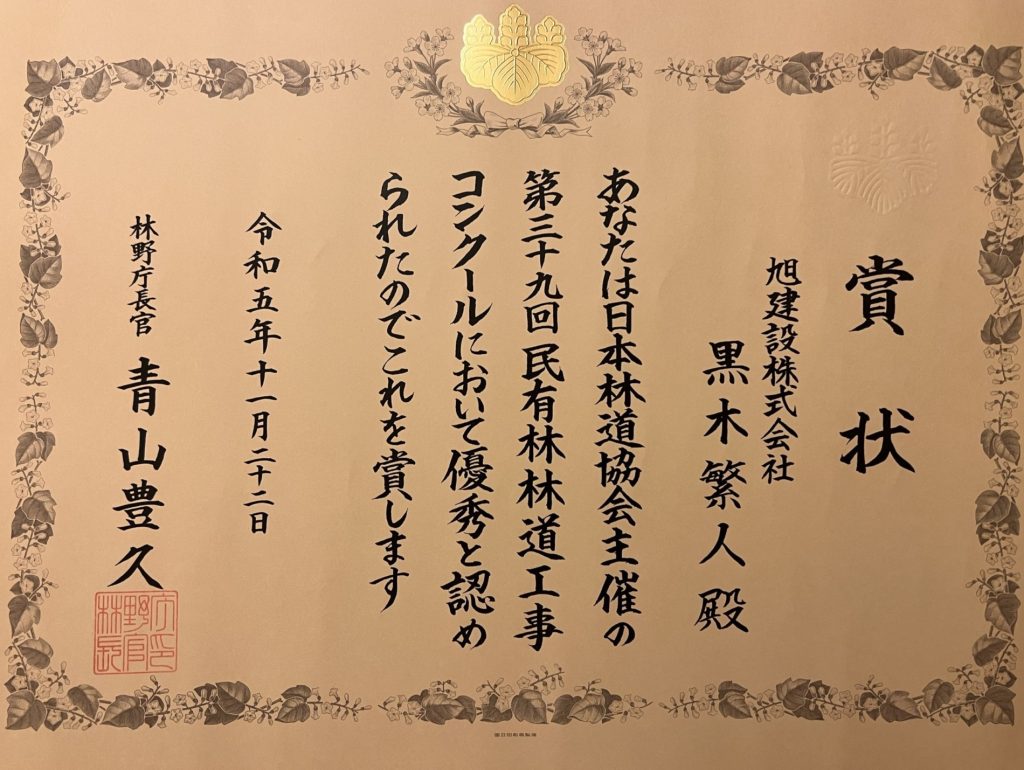 賞状
旭建設株式会社
黒木繁人殿
あなたは日本林道協会主催の
第三十九回民有林林道工事
コンクールにおいて優秀と認め
られたのでこれを賞します
令和五年十一月二十二日
林野庁長官 青山豊久
林野庁長官印